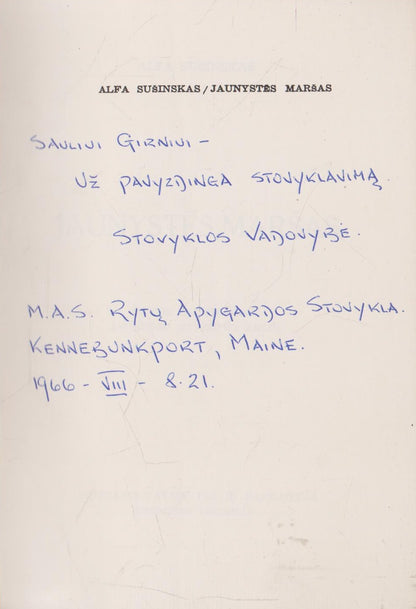 ALFA SUŠINSKAS/JAUNYSTĖS MARŠAS
Sauliui Girniui –
Už pavyzdingą stovyklavimą.
Stovyklos Vadovybė.
M.A.S. Rytų Apygardos Stovykla.
Kennebunkport, Maine.
1966 – VIII – 8.21.